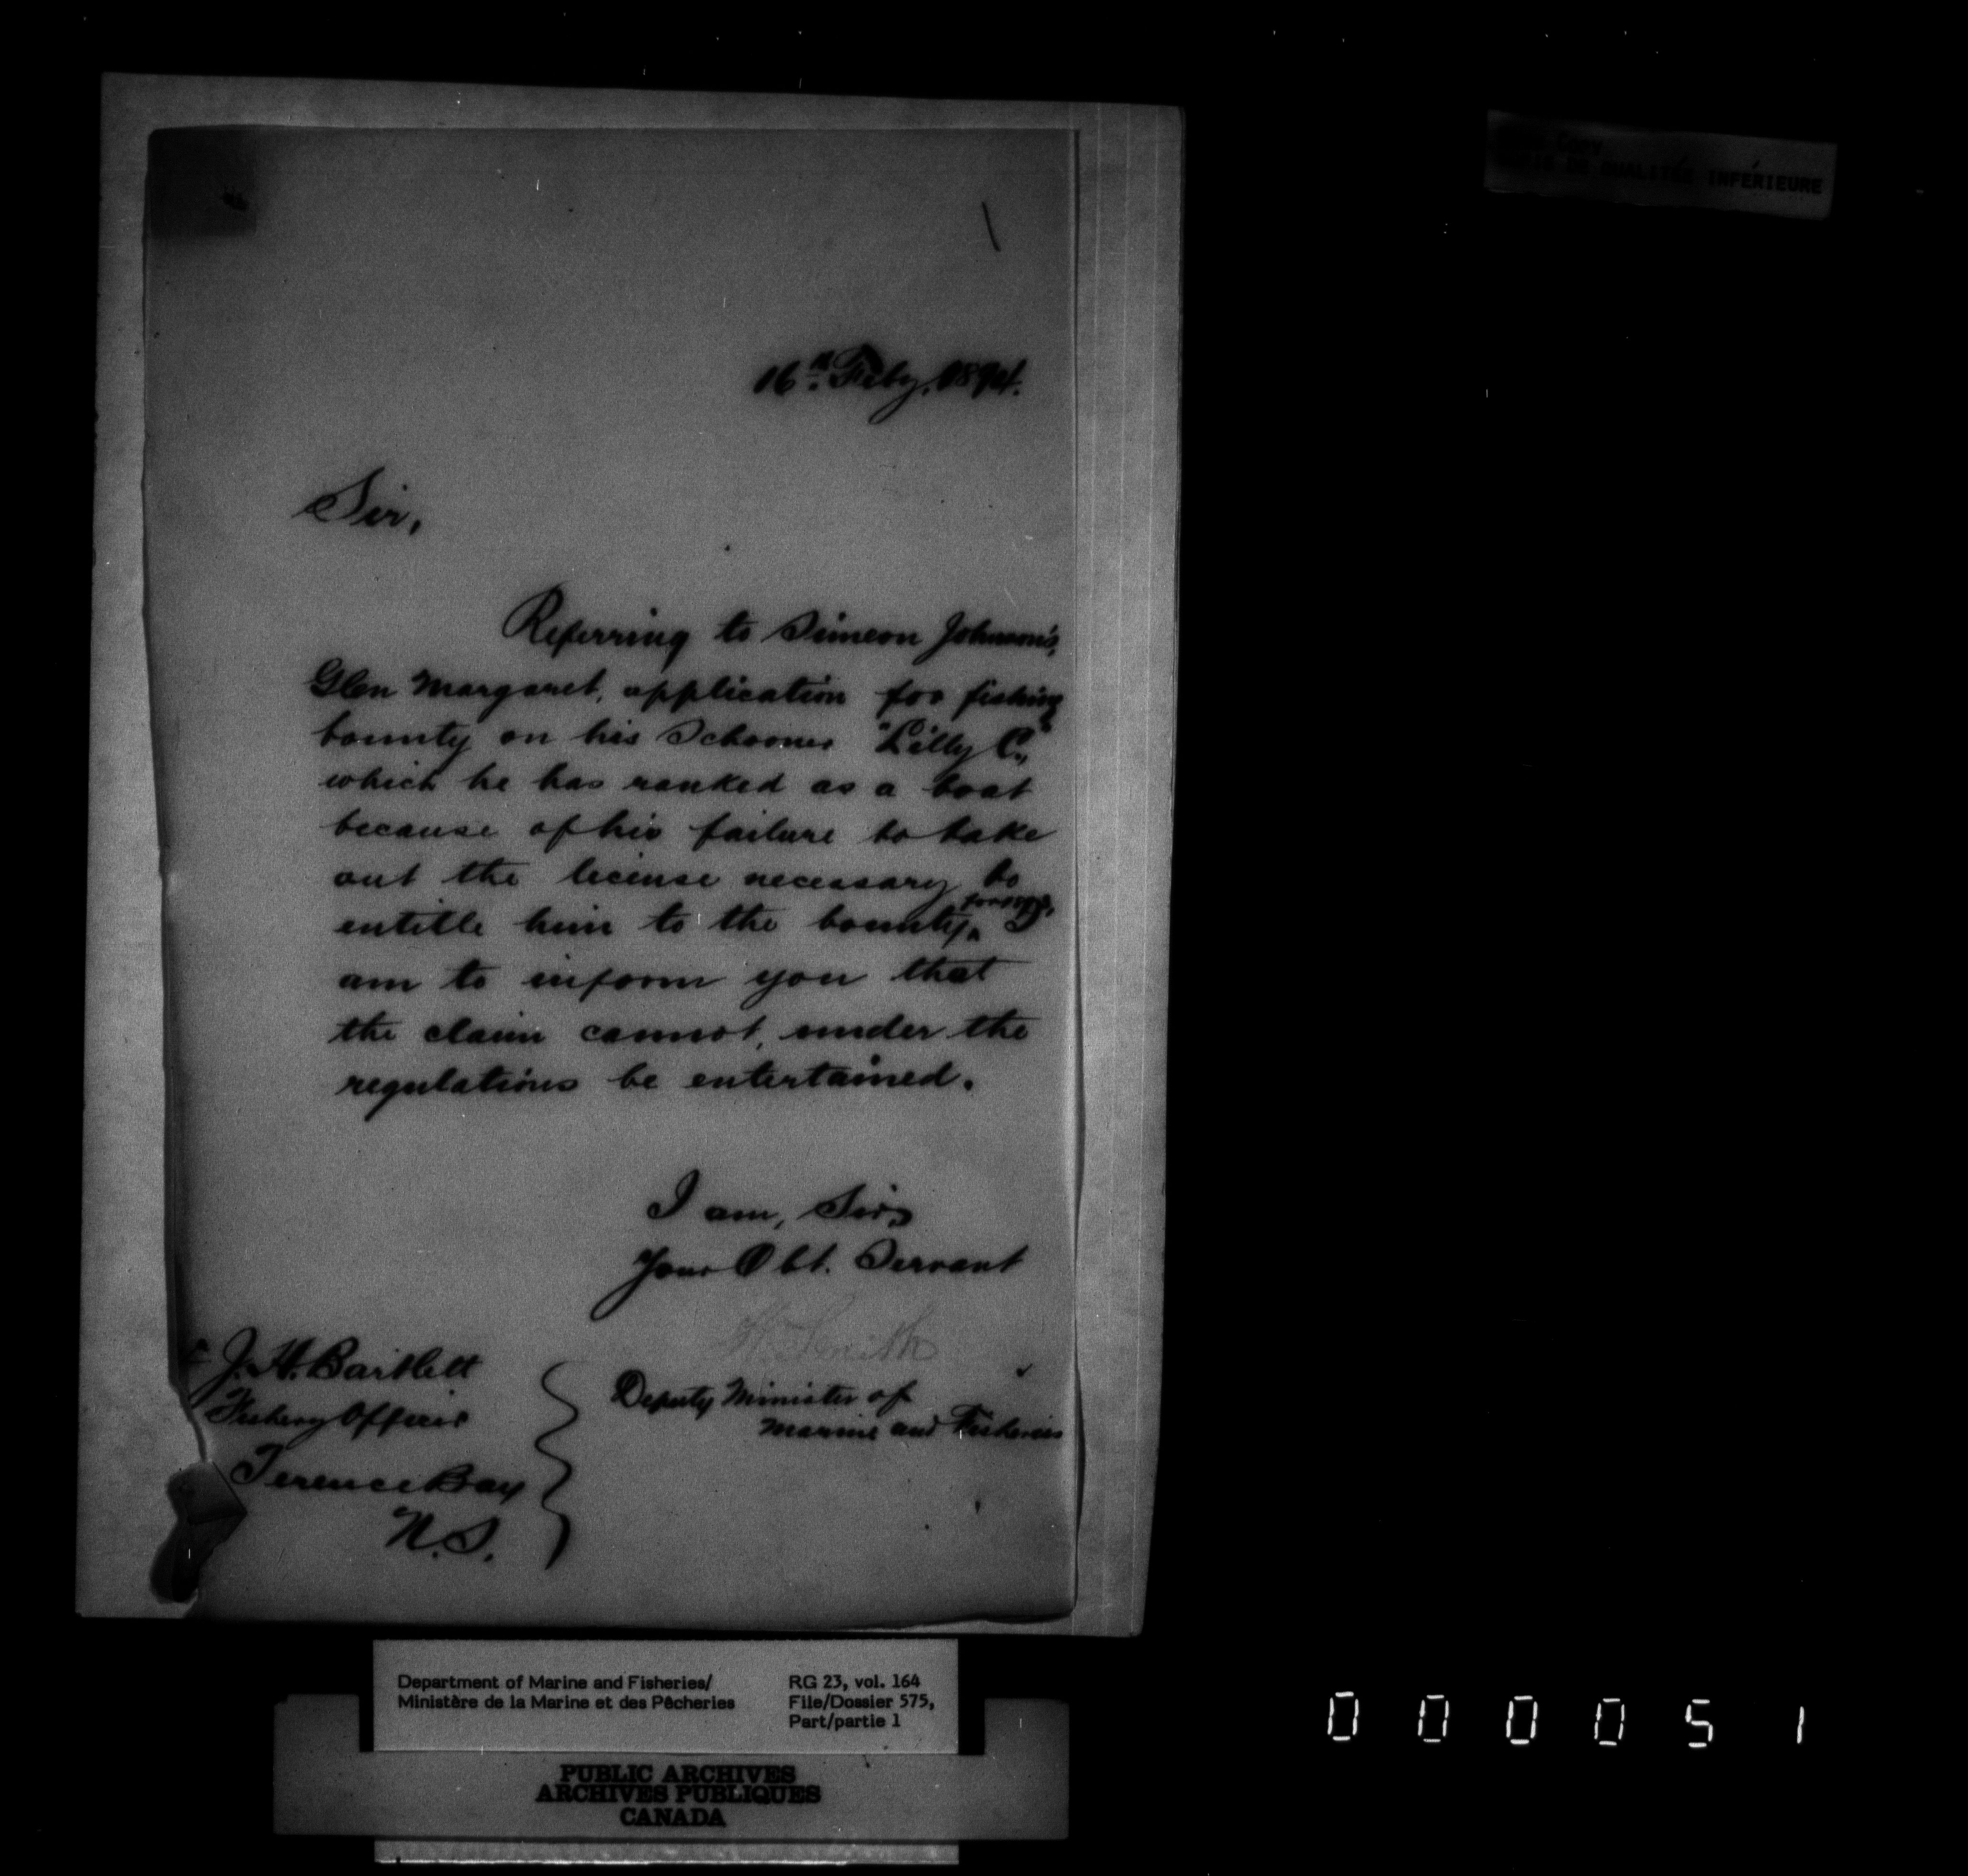 Copy
DE QUALITÉE INFÉRIEURE
16th Feby. 1894.
Sir,
Referring to Simeon Johnson's,
Glen Margaret, application for fishing
bounty on his Schooner "Lilly C.,"
which he has ranked as a boat
because of his failure to take
out the license necessary to
entitle him to the bounty, I
am to inform you that
the claim cannot, under the
regulations be entertained.
I am, Sir,
Your Obt. Servant
W. Smith
Deputy Minister of
Marine and Fisheries
J. H. Bartlett
Fishery Officer
Terence Bay
N.S.
Department of Marine and Fisheries/
Ministère de la Marine et des Pêcheries
RG 23, vol. 164
File/Dossier 575,
Part/partie 1
PUBLIC ARCHIVES
ARCHIVES PUBLIQUES
CANADA
000051